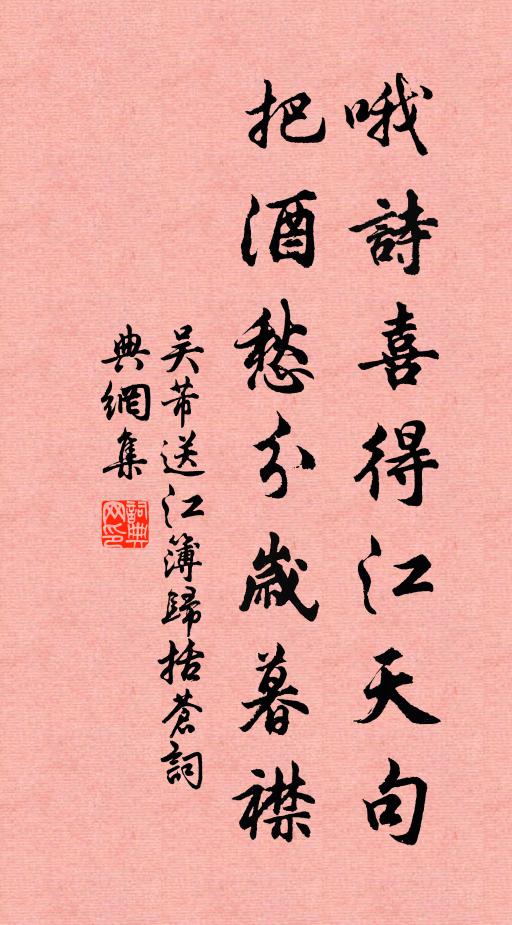 哦詩喜得江天句
把酒愁分歲暮襟
吳芾送江簿歸括蒼詞
典網集
詞典网印